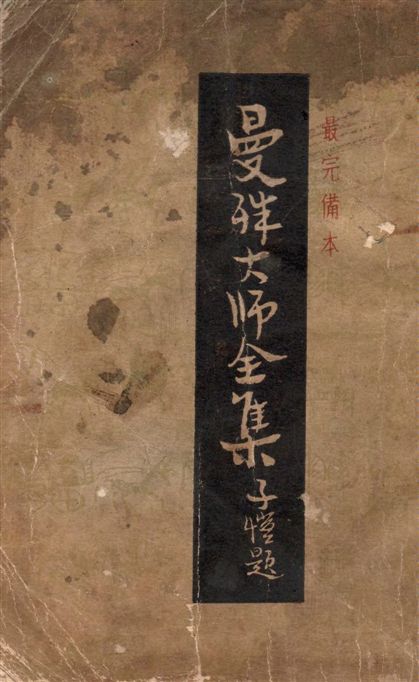 最完備本
曼殊大师全集
子愷題